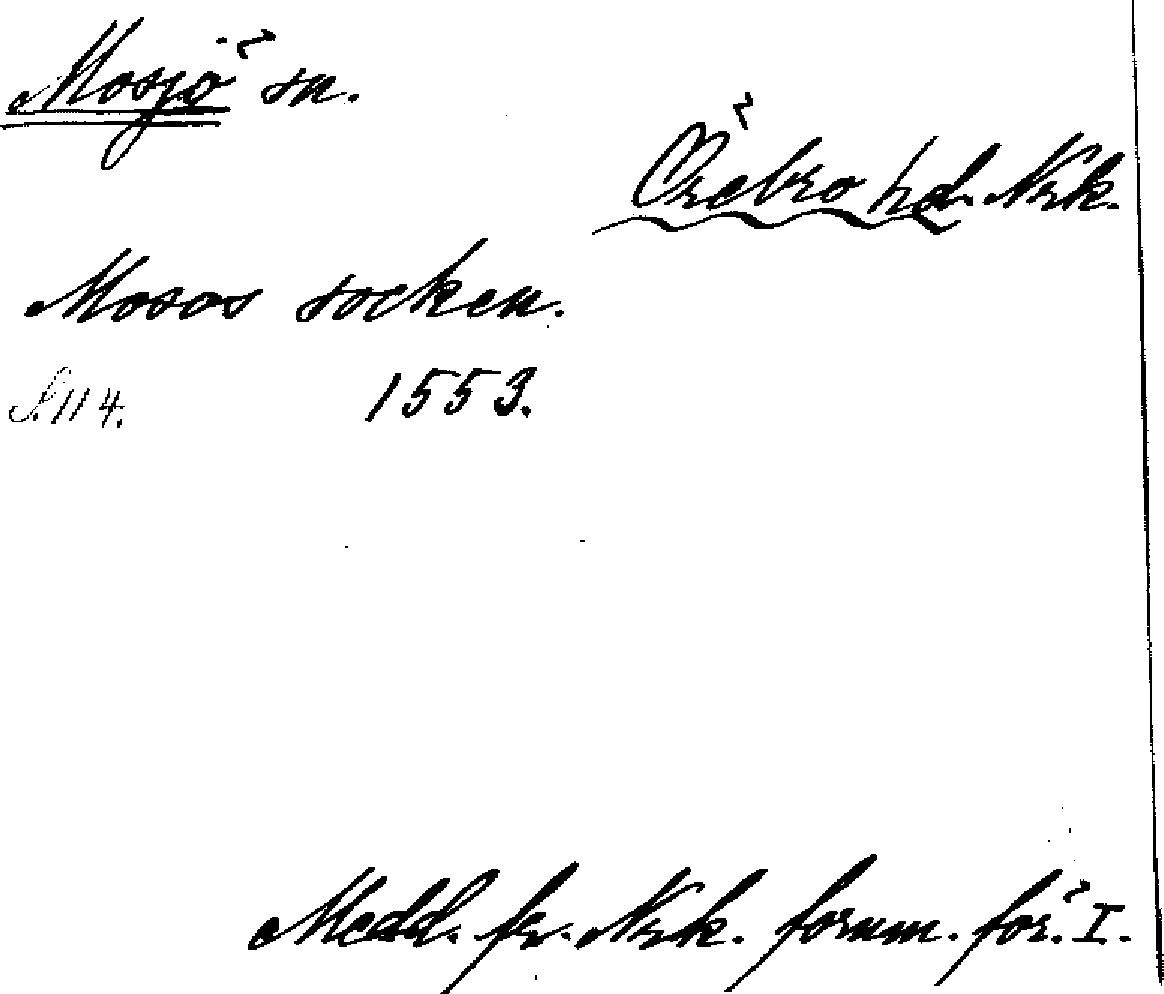 Mosjö sn.
Örebro hd. Nrk.
Mosos socken.
S. 114. 1553.
Medd. fr. Nrk. fornm. för. I.